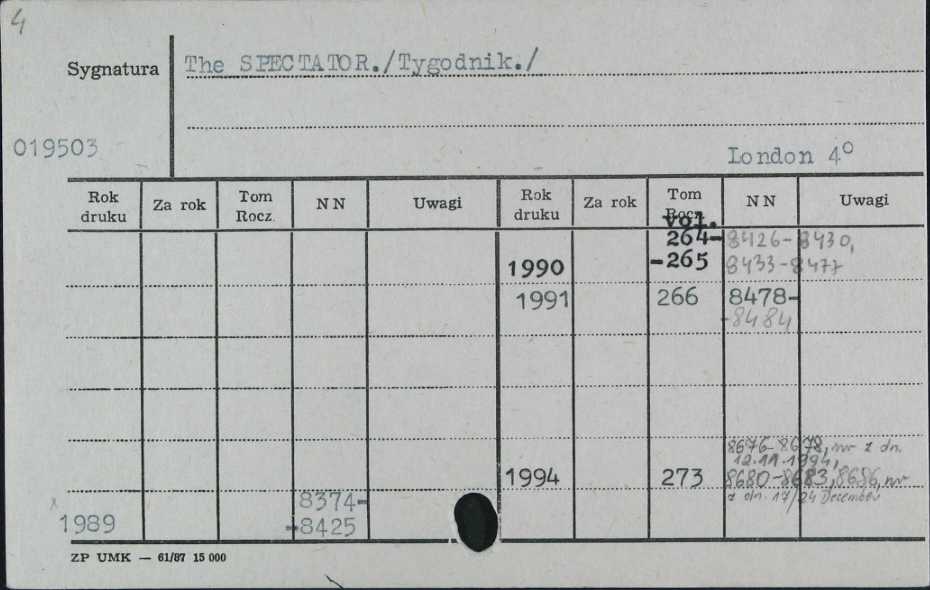 4
Sygnatura
The SPECTATOR./Tygodnik./
019503
London 4°
Rok druku Za rok Tom Rocz. N N Uwagi Rok druku Za rok Tom Rocz. N N Uwagi
vol.
264- 8426-8430,
1990 -265 8433-8477
1991 266 8478-
-8484
8676-8678, nr z dn.
12.11.1994,
1994 273 8680-8683, 8686, nr
z dn. 17/24 December
x
8374-
1989 -8425
ZP UMK — 61/87 15 000